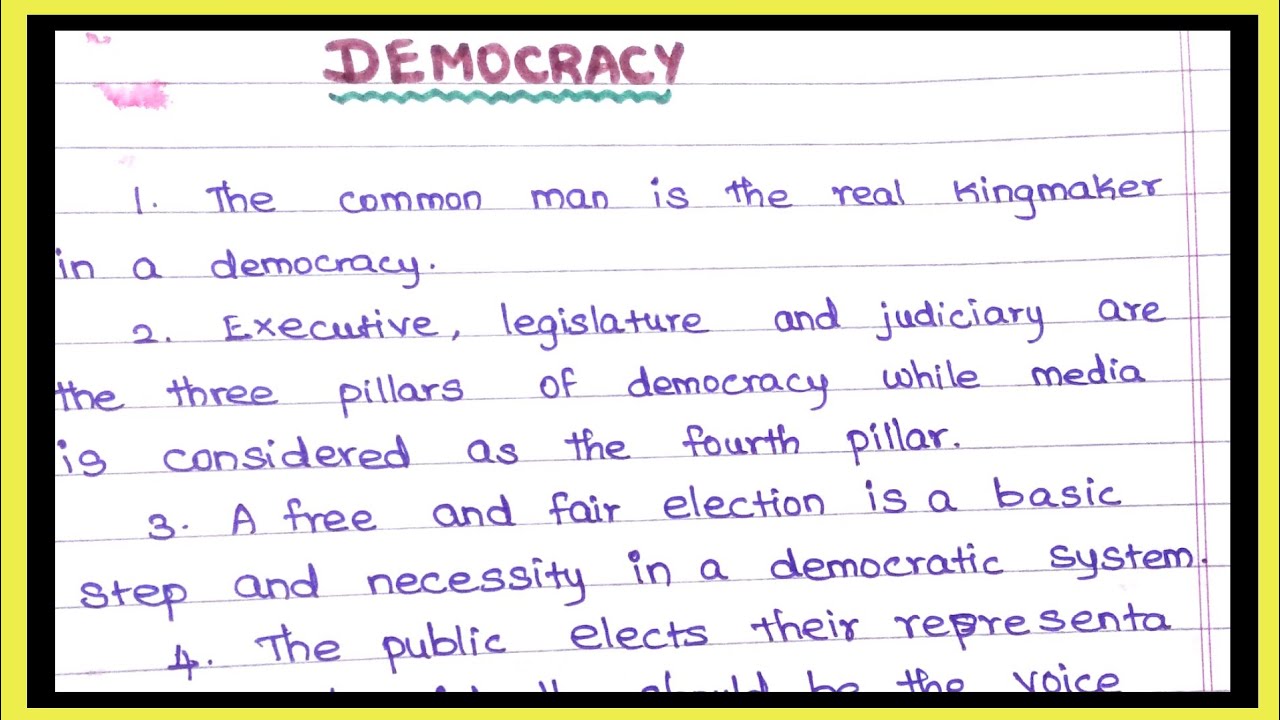 DEMOCRACY
1. The common man is the real kingmaker
in a democracy.
2. Executive, legislature and judiciary are
the three pillars of democracy while media
is considered as the fourth pillar.
3. A free and fair election is a basic
step and necessity in a democratic system.
4. The public elects their representa
should be the voice